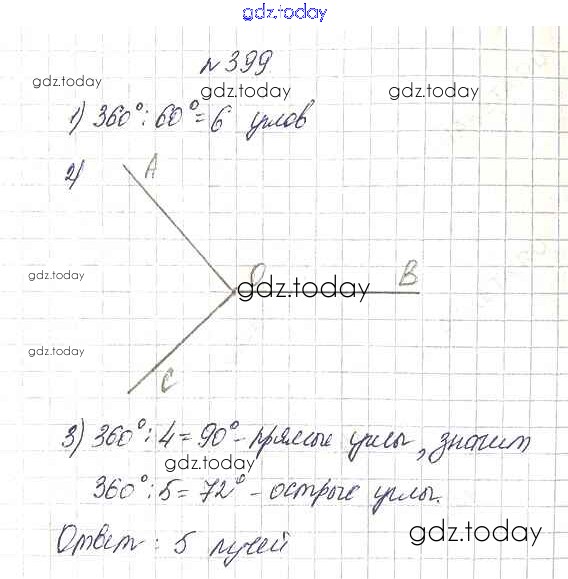 gdz.today
№399
gdz.today
gdz.today
gdz.today
1) 360°:60°=6 углов
2)
A
O
B
gdz.today
gdz.today
gdz.today
C
3) 360°:4=90°-прямые углы, значит
gdz.today
360°:5=72°-острые углы.
Ответ: 5 лучей
gdz.today